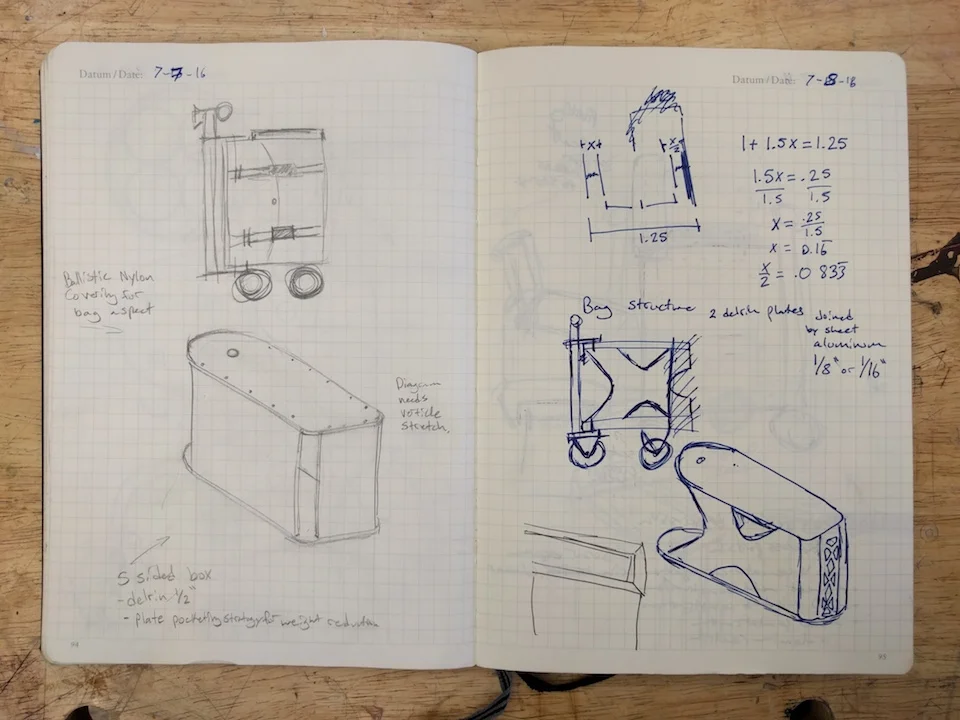 Datum/Date: 7-7-16
Ballistic Nylon
Covering for
bag aspect
Diagram
needs
verticle
stretch.
5 sided box
- delrin 1/2"
- plate pocketing strategy for weight reduction
94
Datum/Date: 7-8-16
x
x/2
1.25
1 + 1.5x = 1.25
1.5x/1.5 = .25/1.5
x = .25/1.5
x = 0.16
x/2 = .0833
Bag structure 2 delrin plates Joined
by sheet
aluminum
1/8" or 1/16"